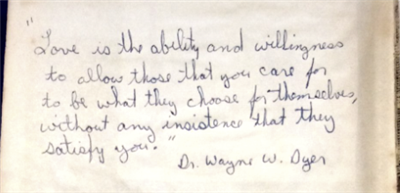 "
Love is the ability and willingness
to allow those that you care for
to be what they choose for themselves,
without any insistence that they
satisfy you."
Dr. Wayne W. Dyer